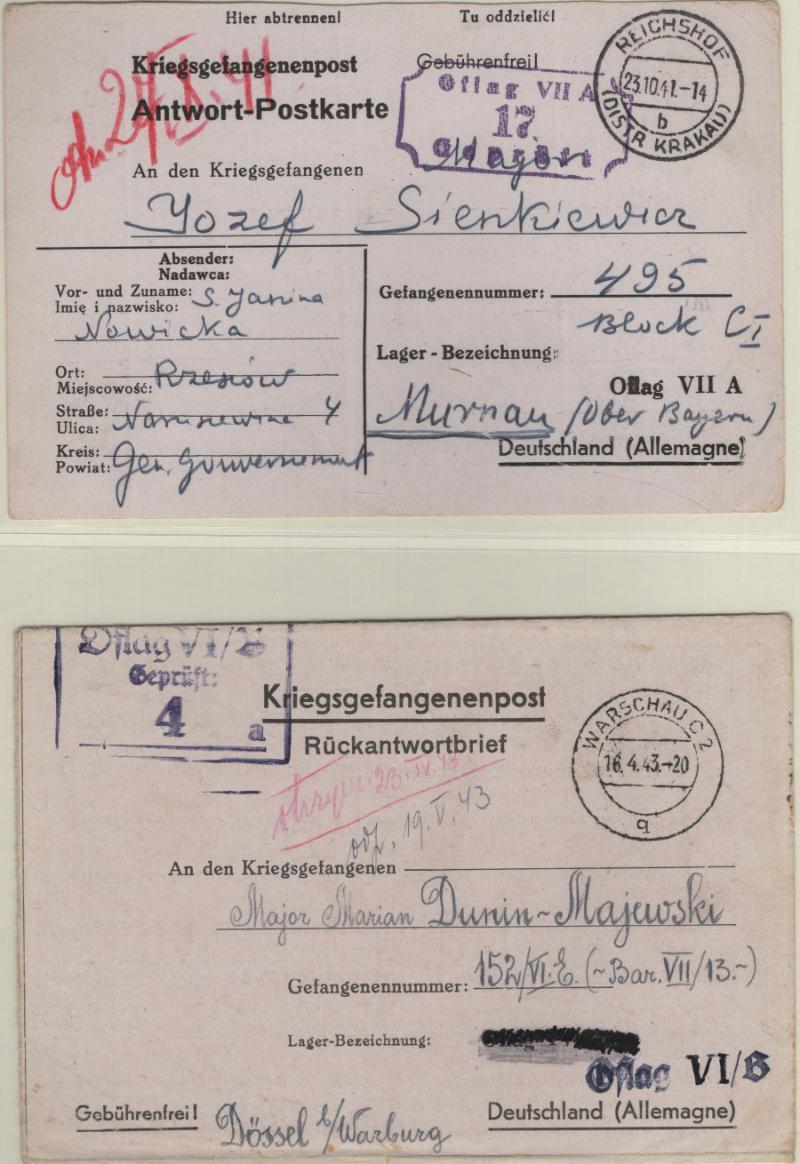 Hier abtrennen! Tu oddzielić!
Kriegsgefangenenpost Gebührenfrei!
REICHSHOF
23.10.41.-14
b
(DISTR. KRAKAU)
Oflag VII A
17
Geprüft
Antwort-Postkarte
Major
An den Kriegsgefangenen
Jozef Sienkiewicz
Absender:
Nadawca:
Vor- und Zuname:
Imię i nazwisko: S. Janina
Nowicka
Ort:
Miejscowość: Rzeszów
Straße:
Ulica: 4
Kreis:
Powiat: Gen. Gouvernement
Gefangenennummer: 495
Block C I
Lager-Bezeichnung:
Oflag VII A
Murnau (Ober Bayern)
Deutschland (Allemagne)
Oflag VI/B
Geprüft:
4 a
Kriegsgefangenenpost
Rückantwortbrief
WARSCHAU C 2
16.4.43.-20
q
otrzym. 23.IV.43.
odp. 19.V.43
An den Kriegsgefangenen
Major Marian Dunin-Majewski
Gefangenennummer: 152/VI.E. (~Bar.VII/13.~)
Lager-Bezeichnung:
Oflag VI/B
Gebührenfrei! Dössel b/Warburg Deutschland (Allemagne)